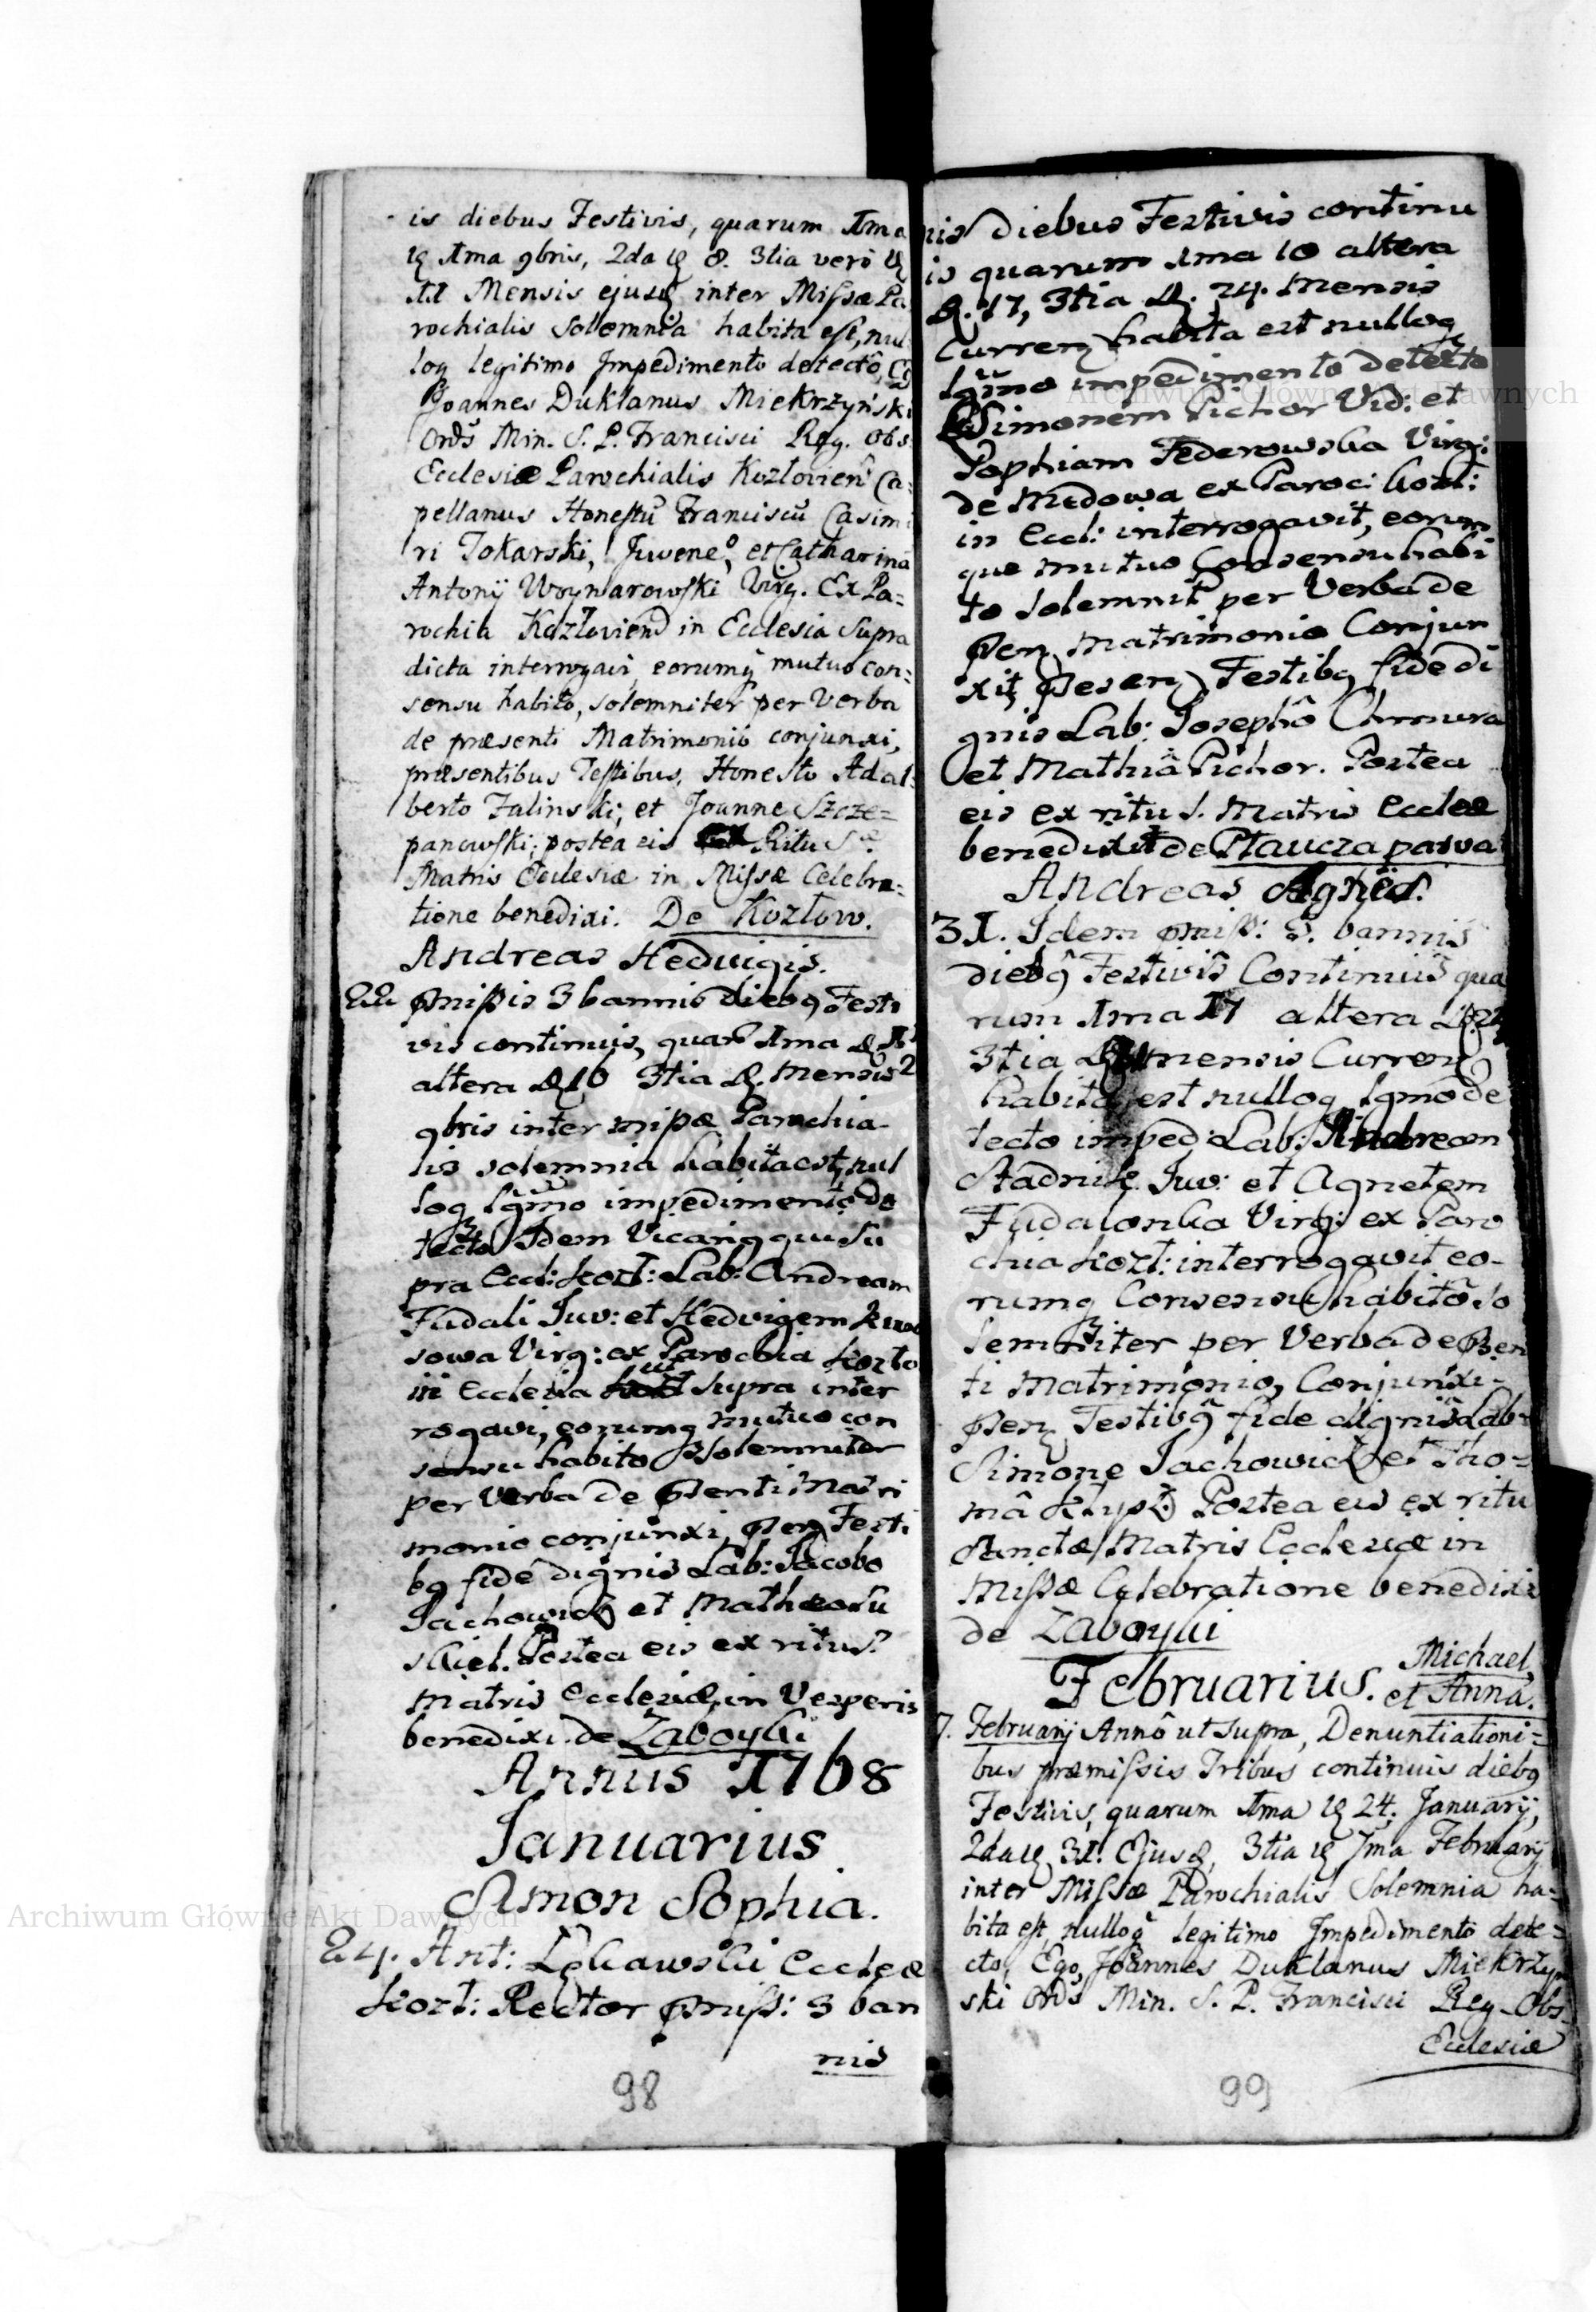 is diebus Festivis, quarum 1ma
1ma 9bris, 2da 8. 3tia vero
Mensis ejusq inter Missæ Pa
rochialis Solemnia habita est, nul
loq legitimo Impedimento detectô, Ego
Joannes Duklanus Miekrzyński
Ords Min. S. P. Francisci Reg. Obs.
Ecclesiæ Parochialis Kozłovien Ca=
pellanus Honestũ Franciscũ Casimi
ri Tokarski, Juvene, et Catharinã
Antonij Woynarowski Virg. Ex Pa=
rochia Kozłovien in Ecclesia Supra
dicta interrogavi, eorumq mutuo con=
sensu habito, solemniter per Verba
de præsenti Matrimonio conjunxi,
præsentibus Testibus, Honesto Adal=
berto Zalinski, et Joanne Szcze=
panowski; postea eis Ritu S.æ
Matris Ecclesiæ in Missæ Celebra=
tione benedixi. De Kozłow.
Andreas Hedvigis.
22 pmissis 3 bannis diebq Festi
vis continuis, quarũ 1ma
altera 3tia Mensis
9bris inter missæ Parochia
lis solemnia habita est, nul
loq lgmo impedimento de
tecto Idem Vicariq qui Su
pra Eccl: Kozł: Lab: Andream
Fudali Juv: et Hedvigem
sowa Virg: ex Parochia Kozło
in Ecclesia supra inter
rogavi, eorumq mutuo con
sensu habito solemniter
per Verba de psenti Matri
monio conjunxi, psen Testi
bq fide dignis Lab: Jacobo
Jachowicz et Matheo Su
skiel. Postea eis ex ritu S.
Matris Ecclesiæ in Vesperis
benedixi. de Zaboyki
Annus 1768
Januarius
Simon Sophia.
24. Ant: Łękawski Eccleæ
Kozł: Rector pmiss: 3 ban
nis
98
nis diebus Festivis continu
is quarum 1ma 10 altera
17, 3tia 24. Mensis
Curren habita est nulloq
lgmo impedimento detecto
Simonem Pichor Vid: et
Sophiam Federowska Virg:
de Medowa ex Paroc: Kozł:
in Eccl: interrogavit, eorum
que mutuo Consensu habi
to solemnit per Verba de
psen Matrimonio Conjun
xit, psesen Testibq fide di
gnis Lab: Josephô Chmura
et Mathiâ Pichor. Postea
eis ex ritu S. Matris Eccleæ
benedixit de Płaucza parva
Andreas Agnes.
31. Idem pmiss: 3. bannis
diebq Festivis Continuis qua
rum 1ma 17 altera 24
3tia mensis Curren
habita est nulloq lgmo de
tecto imped: Lab: Andream
Stadnik Juv: et Agnetem
Fudalonka Virg: ex Paro
chia Kozł: interrogavit eo-
rumq Consensu habitô so
lemniter per Verba de psen
ti Matrimonio, Conjunxi.
psen Testibq fide dignis Lab:
Simone Jachowicz et Tho=
mâ Postea eis ex ritu
Sanctæ Matris Ecclesiæ in
Missæ Celebratione benedixi
de Zaboyki
Februarius. Michael,
et Anna.
7. Februarij Annô ut supra, Denuntiationi=
bus præmissis Tribus continuis diebq
Festivis, quarum 1ma 24. Januarij,
2da 31. Ejusd, 3tia 7ma Februarij
inter Missæ Parochialis Solemnia ha=
bita est, nulloq legitimo Impedimento dete=
cto, Ego, Joannes Duklanus Miekrzyn
ski Ords Min. S. P. Francisci Reg. Obs.
Ecclesiæ
99
Archiwum Główne Akt Dawnych
Archiwum Główne Akt Dawnych